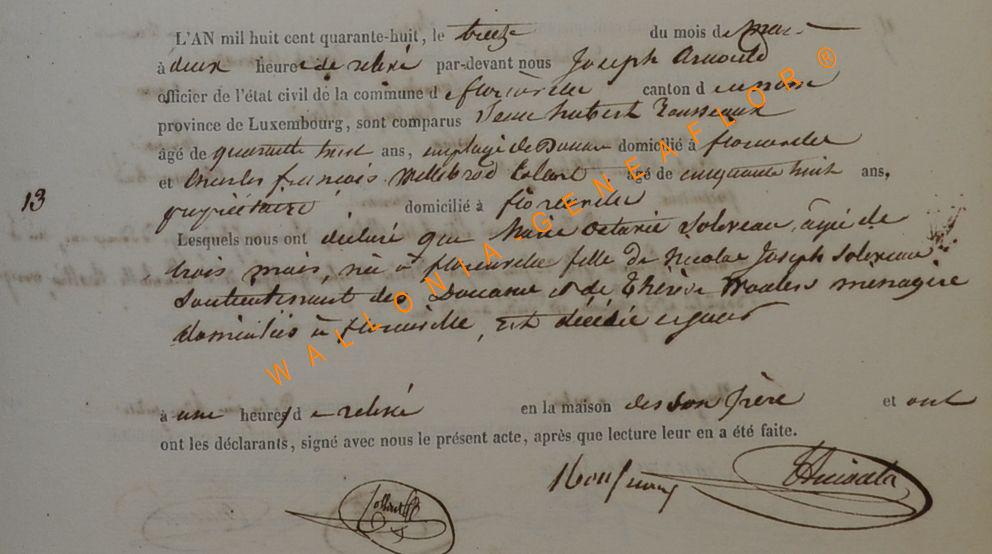 L'AN mil huit cent quarante-huit, le treize du mois de mai
à deux heures de relevé par-devant nous Joseph Arnould
officier de l'état civil de la commune de florenville canton d idem
province de Luxembourg, sont comparus Jean hubert Rousseaux
âgé de quarante huit ans, employé de Douane domicilié à florenville
et Charles françois Willebrod Colart âgé de cinquante huit ans,
13
propriétaire domicilié à florenville
Lesquels nous ont déclaré que Marie Octavie Solveau, âgée de
trois mois, née à florenville fille de Nicolas Joseph Solveau
Souslieutenant des Douane et de Thérèse Wouters ménagère
domiciliés à florenville, est décédée
à une heures de relevé en la maison de son frère et ont
ont les déclarants, signé avec nous le présent acte, après que lecture leur en a été faite.
WALLONIA GENEAFLOR ®